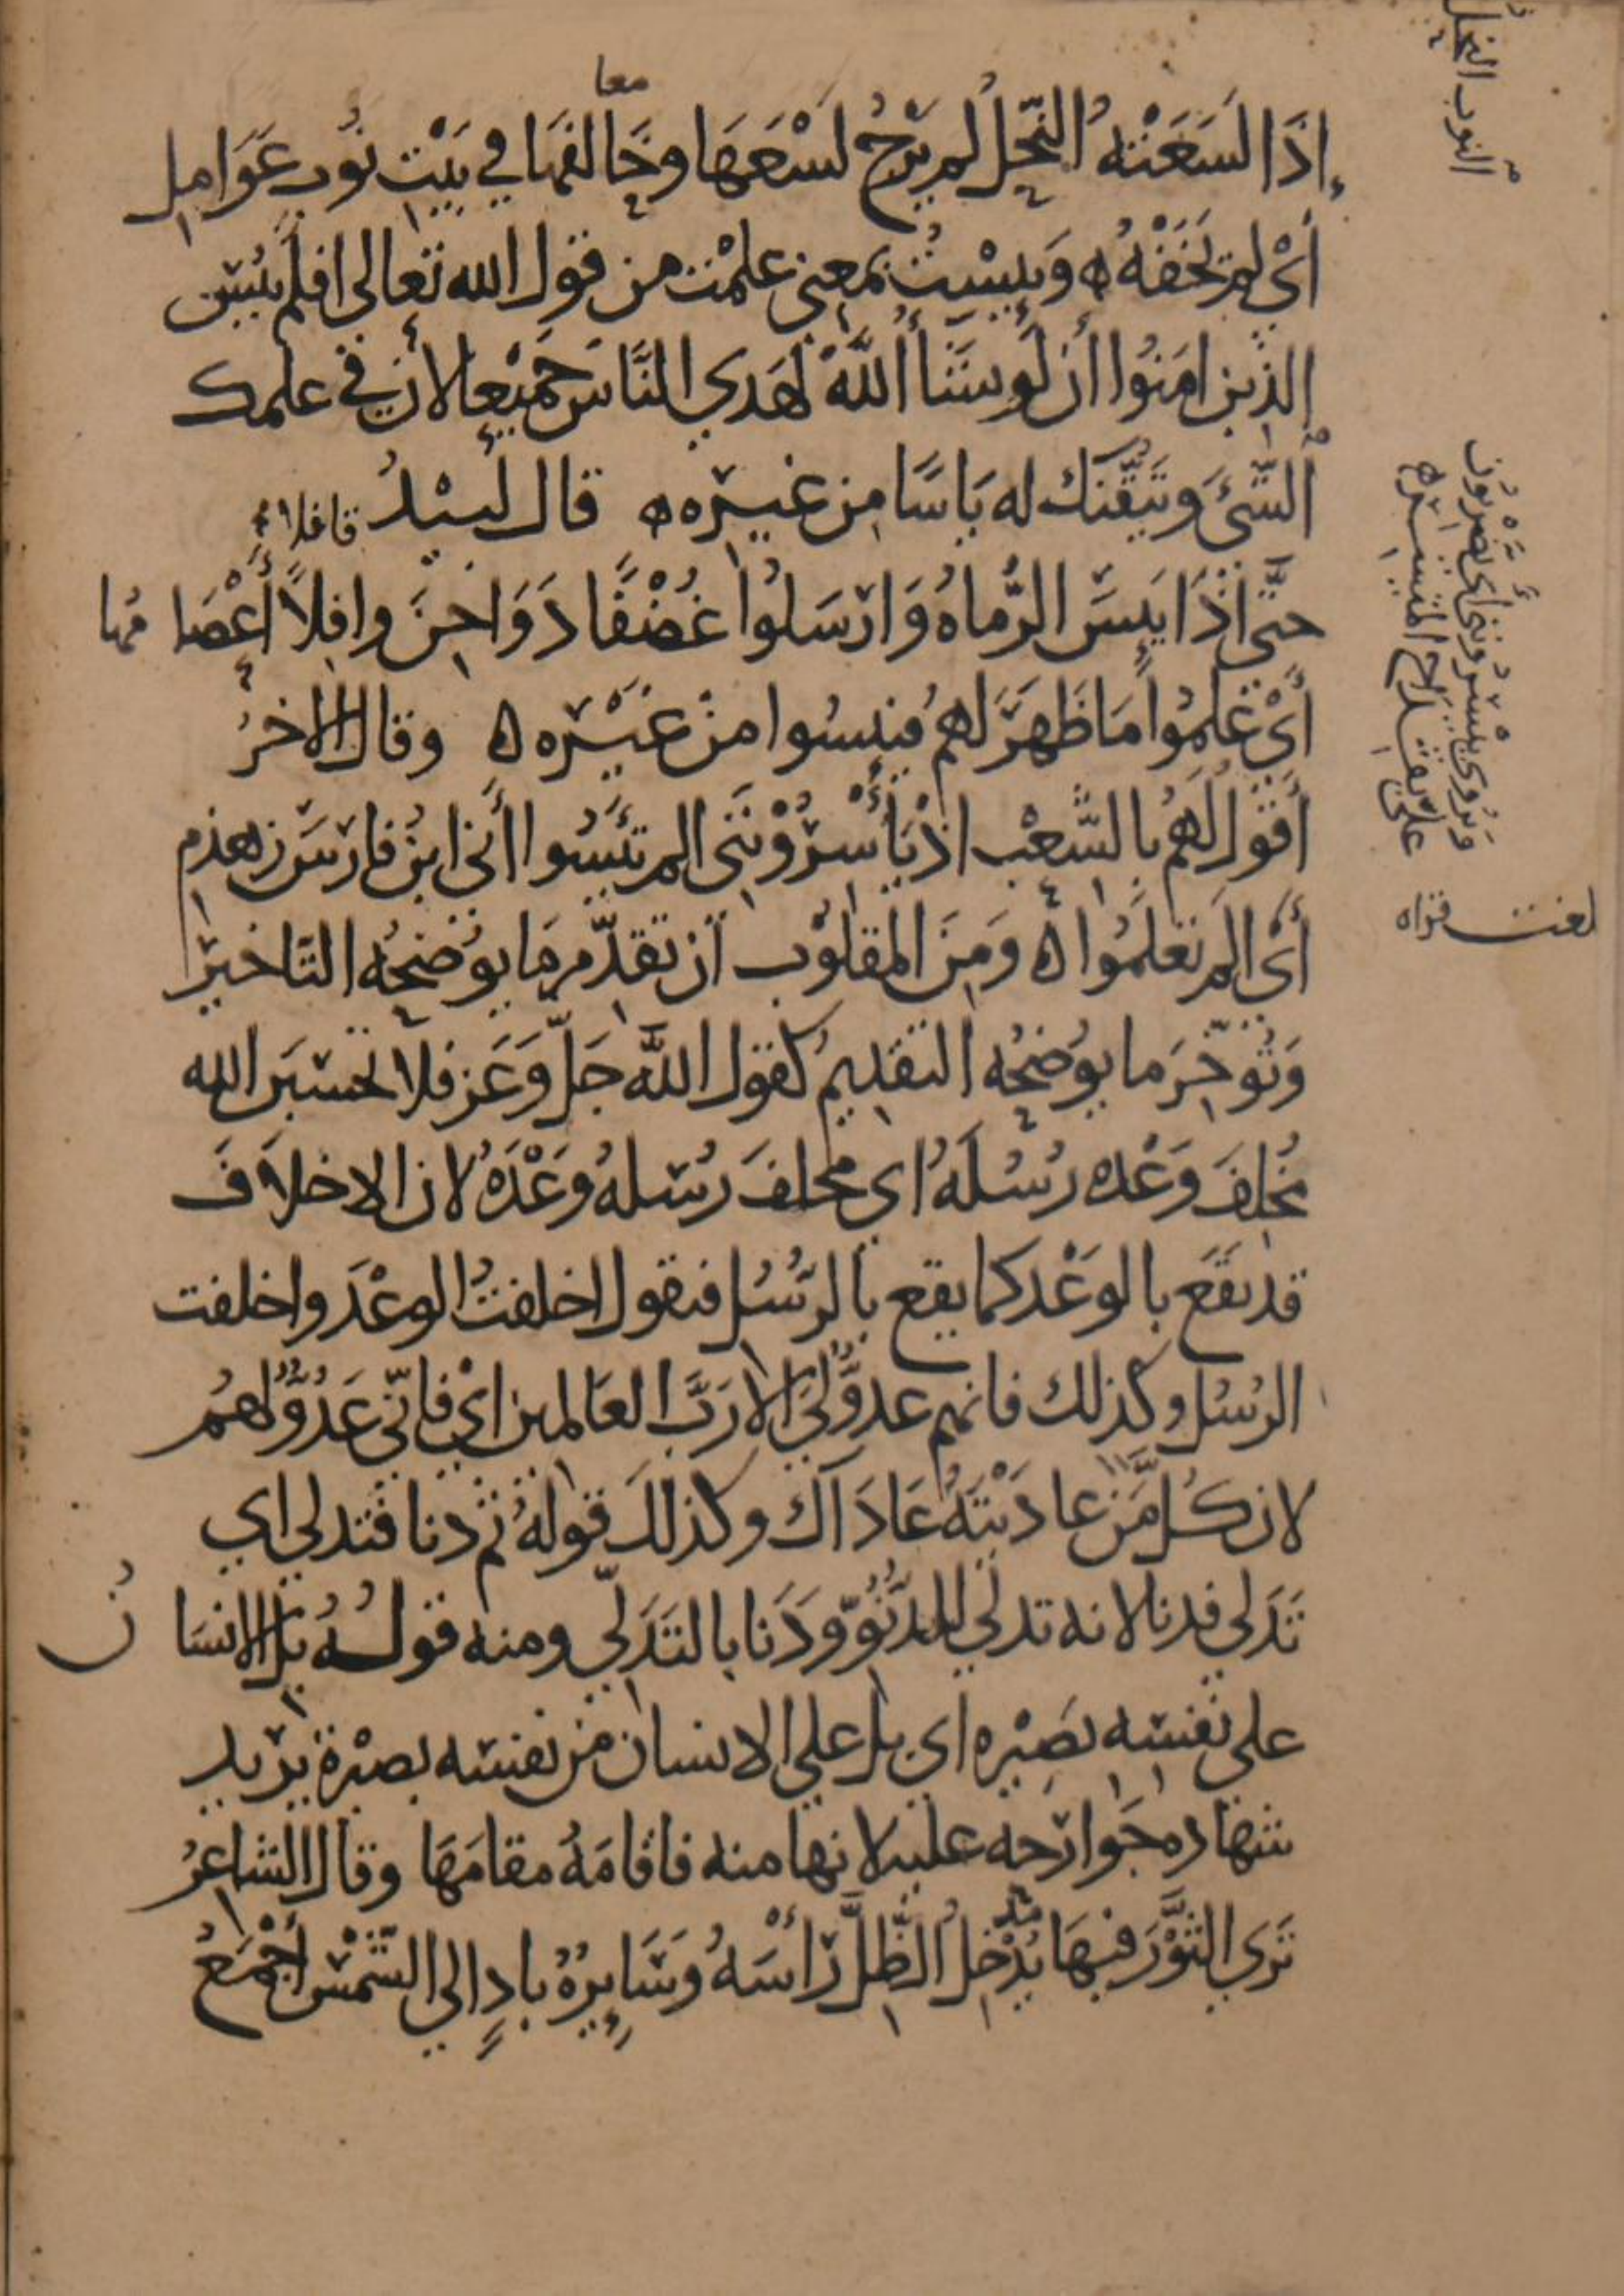 إِذَا لَسَعَتْهُ النَّحْلُ لم يَرْجُ لَسْعَهَا وخَالفهَا في بَيْتِ نُوبٍ عَوَامِلِ
معا
أَىْ لم يَخَفْهُ ه وَيَئِسْتُ بمعنى علِمْت من قول الله تعالى افلَمْ يَيْئَسِ
الذِين امَنُوا أن لَو يشَأُ اللَّهُ لهَدي النَّاسَ جَمِيْعا لأن في علمك
الشَّئَ وتَيَقُّنك له يَاسًا مِن غيرِه ه قال لَبيْدُ
حتَّى اذَا يَئِسَ الرُّمَاةُ وَارْسَلُوا غُضْفًا دَوَاجِنَ قافِلاً أَعْصَامُها
قافلا
أَىْ عَلِمُوا مَا ظَهَرَ لهم فيئِسُوا من غَيْرِه ه وقال الاخرُ
أَقُولُ لَهُمُ بِالشَّعْبِ اذْ يَأْسِرُوْنَنِى الم تَيْئَسُوا أَنِّى ابنُ فارسَ زهدم
أَىْ الم تعلَمُوا ه وَمِنَ المقلُوْب أن تقدِّمَ مَا يوُضحُه التَّاخيرُ
وَتُوخِّرَ ما يوُضحُه التقديمُ كقول اللَّه جَلَّ وَعَز فلا تحسَبَن الله
مُخلِفَ وَعْده رُسُلَهُ اى مخلفَ رُسلهُ وَعْدَهُ لان الاخلاَفَ
قد يقَع بالوَعْد كما يقع بالرُّسُل فتقول اخلفتُ الوعْدَ واخلفت
الرسُل وكذلك فانهم عدوٌّ لي الا رَبَّ العَالمين اىْ فإنّى عَدُوٌّ لهُم
لان كُل مَن عَاديْتَهُ عَادَاك وكذلك قولهُ ثم دنا فتدلي اي
تَدَلي فدنا لانه تدلي للدُّنُوِّ وَدَنا بالتَدَلِّي ومنه قولهُ بَل الانسَانُ
على نفسه بصِيْره اى بل على الانسان من نفسه بصيْرة يريد
شهاده جَوارحه عليه لانها منه فاقامَهُ مقامَهَا وقال الشاعِرُ
تَري الثَّوْرَ فيهَا يُدْخِلُ الظِّلَّ رَاْسَهُ وَسَايِرُهُ بادٍ الي الشَّمْسِ أَجْمَعُ
النوب النحل
ويُروى يَيْسِرُونني اى يَضْربُون
علىّ بقداح الميسر
لعنت قراه